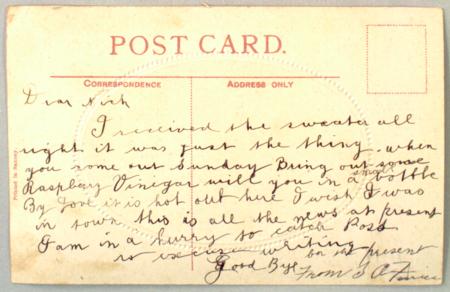 POST CARD.
CORRESPONDENCE
ADDRESS ONLY
Dear Nick
I received the sweater all
right it was just the thing. when
you come out Sunday Bring out some
Raspbery Vinegar will you in a small bottle
By Jove it is hot out here I wish I was
in town this is all the news at present
I am in a hurry to catch Post
so excuse writing
Good Bye for at present
From J A